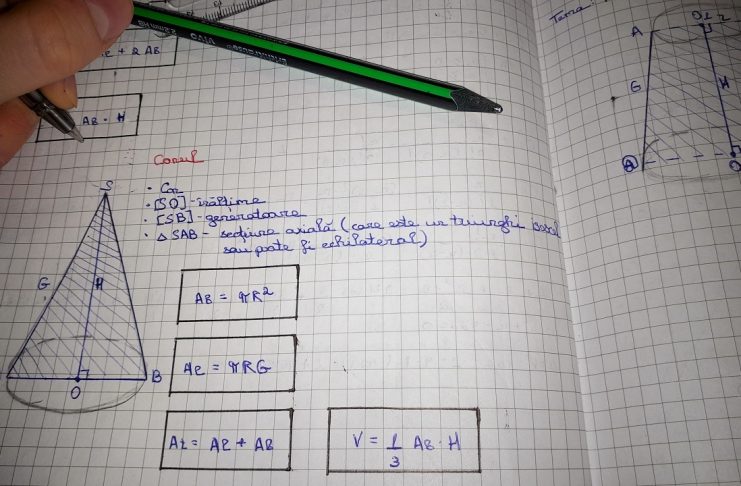 Tema:
e + 2 AB
AB · H
Conul
· [SO] - înălțime
· [SB] - generatoare
· Δ SAB - secțiune axială (care este un triunghi
sau poate fi echilateral)
S
G
H
O
B
AB = πR²
Al = πRG
At = Al + AB
V = 1/3 AB · H
A
G
H